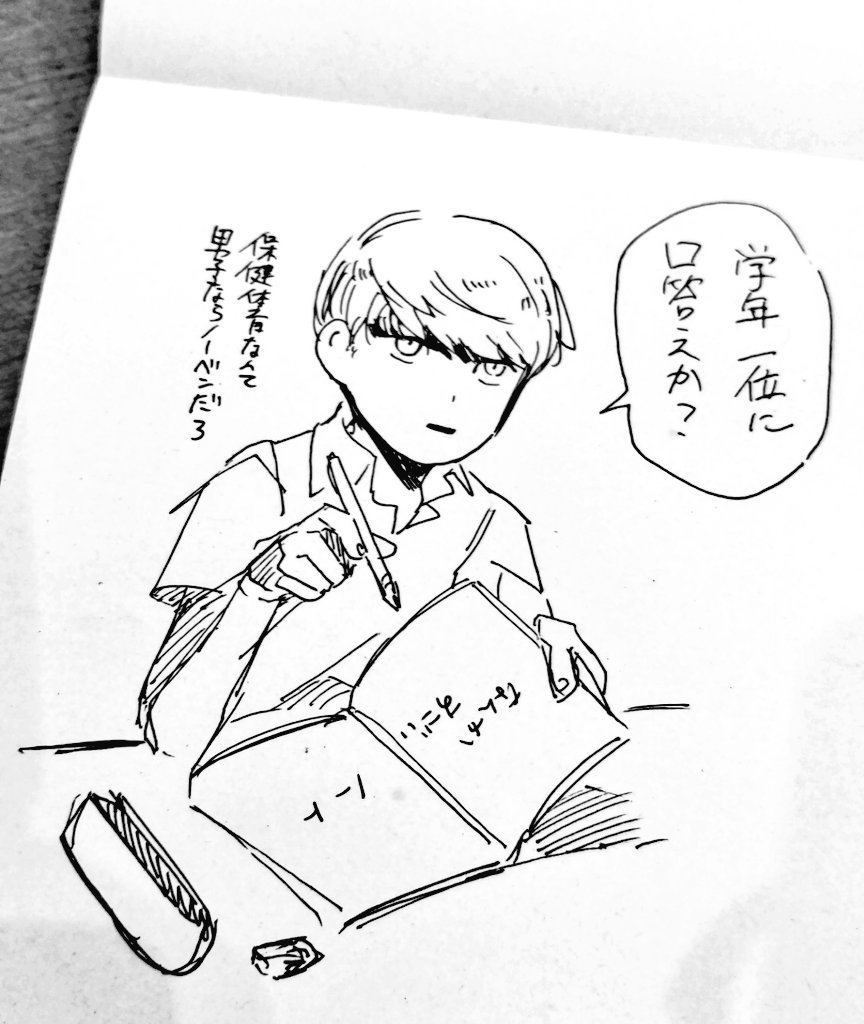 学年一位に
口答えか?
保健体育なんて
男子ならノーベンだろ